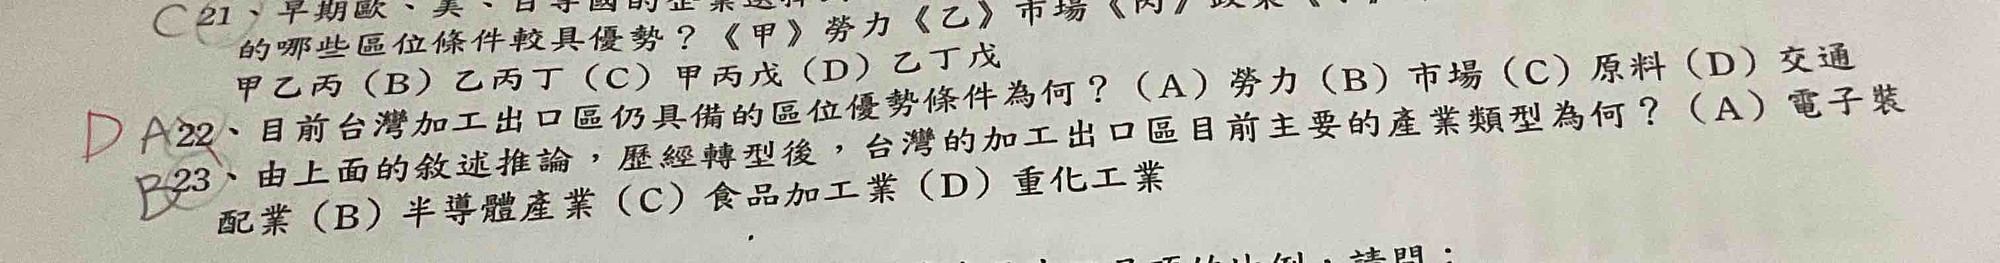 C 21、早期歐、美、日等國的企業
的哪些區位條件較具優勢？《甲》勞力《乙》市場《丙》政策
甲乙丙（B）乙丙丁（C）甲丙戊（D）乙丁戊
D A 22、目前台灣加工出口區仍具備的區位優勢條件為何？（A）勞力（B）市場（C）原料（D）交通
B 23、由上面的敘述推論，歷經轉型後，台灣的加工出口區目前主要的產業類型為何？（A）電子裝
配業（B）半導體產業（C）食品加工業（D）重化工業
的比例，請問：